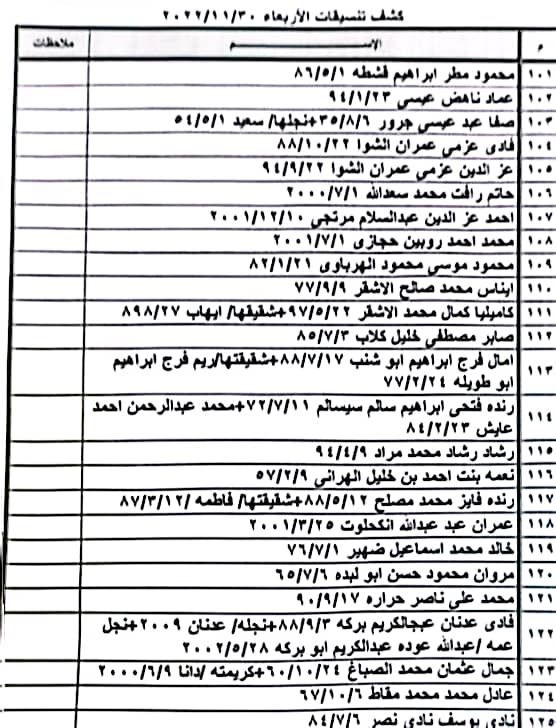 كشف تنسيقات الأربعاء ٢٠٢٢/١١/٣٠
م الاســــــم ملاحظات
١٠١ محمود مطر ابراهيم قشطه ٨٦/٥/١
١٠٢ عماد ناهض عيسى ٩٤/١/٢٣
١٠٣ صفا عبد عيسى جرور ٣٥/٨/٦+نجلها/ سعيد ٥٤/٥/١
١٠٤ فادى عزمي عمران الشوا ٨٨/١٠/٢٢
١٠٥ عز الدين عزمي عمران الشوا ٩٤/٩/٢٢
١٠٦ حاتم رافت محمد سعدالله ٢٠٠٠/٧/١
١٠٧ احمد عز الدين عبدالسلام مرتجى ٢٠٠١/١٢/١٠
١٠٨ محمد احمد روبين حجازى ٢٠٠١/٧/١
١٠٩ محمود موسى محمود الهرباوى ٨٢/١/٢١
١١٠ ايناس محمد صالح الاشقر ٧٧/٩/٩
١١١ كاميليا كمال محمد الاشقر ٩٧/٥/٢٢+شقيقها/ ايهاب ٨٩٨/٢٧
١١٢ صابر مصطفى خليل كلاب ٨٥/٧/٣
١١٣ امال فرج ابراهيم ابو شنب ٨٨/٧/١٧+شقيقتها/ريم فرج ابراهيم
ابو طويله ٧٧/٢/٢٤
١١٤ رنده فتحى ابراهيم سالم سيسالم ٧٢/٧/١١+محمد عبدالرحمن احمد
عايش ٨٤/٢/٢٣
١١٥ رشاد رشاد محمد مراد ٩٤/٤/٩
١١٦ نعمه بنت احمد بن خليل الهرانى ٥٧/٢/٩
١١٧ رنده فايز محمد مصلح ٨٨/٥/١٢+شقيقتها/ فاطمه /٨٧/٣/١٢
١١٨ عمران عبد عبدالله انكحلوت ٢٠٠١/٣/٢٥
١١٩ خالد محمد اسماعيل ضهير ٧٦/٧/١
١٢٠ مروان محمود حسن ابو لبده ٦٥/٧/٦
١٢١ محمد على ناصر حراره ٩٠/٩/١٧
١٢٢ فادى عدنان عبجالكريم بركه ٨٨/٩/٣+نجله/ عدنان ٢٠٠٩+نجل
عمه /عبدالله عوده عبدالكريم ابو بركه ٢٠٠٢/٥/٢٨
١٢٣ جمال عثمان محمد الصباغ ٦٠/١٠/٢٤+كريمته /دانا ٢٠٠٠/٦/٩
١٢٤ عادل محمد محمد مقاط ٦٧/١٠/٦
١٢٥ نادى يوسف نادى نصر ٨٤/٧/٦